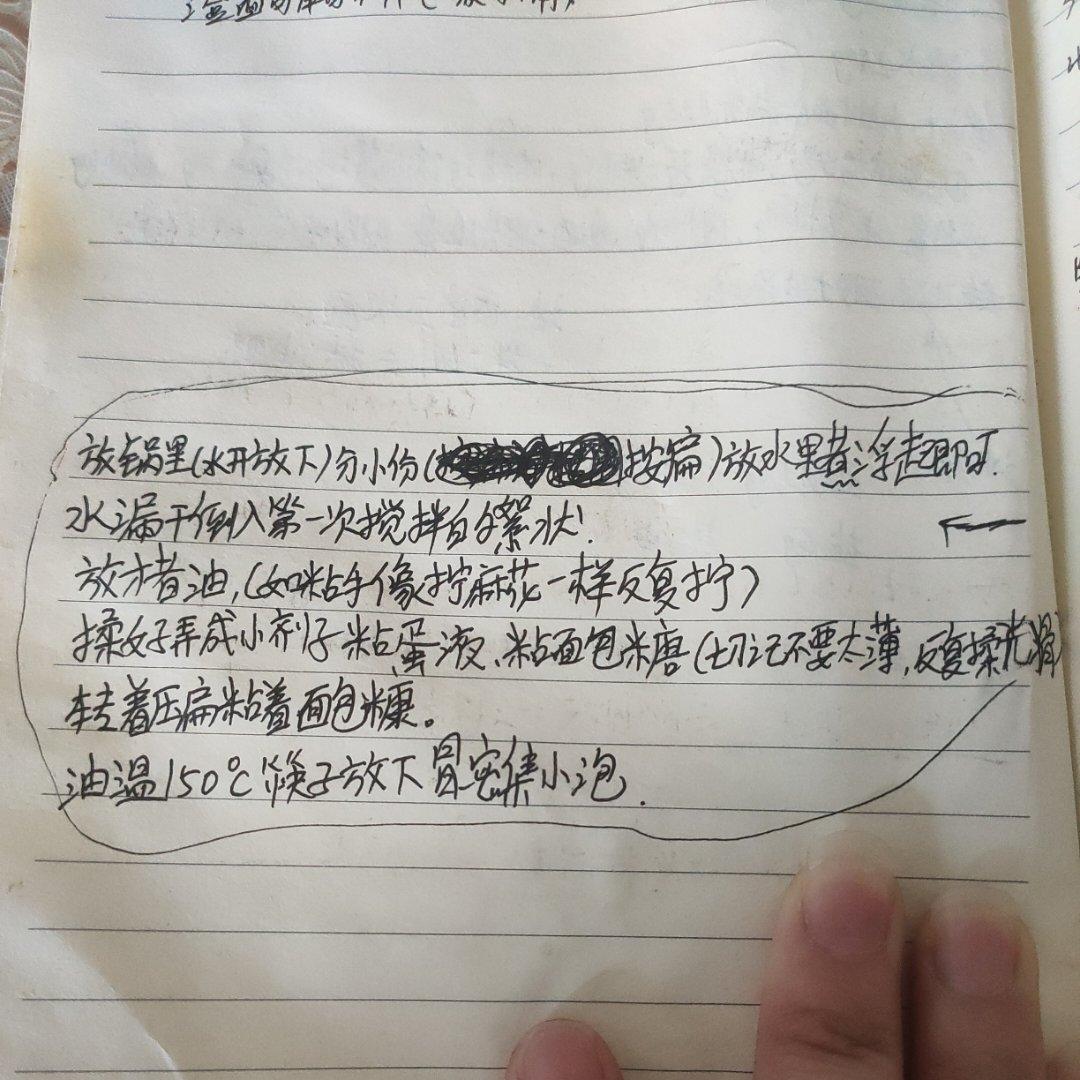 放锅里(水开放下)分小份(按扁)放水里煮浮起即可.
水漏干倒入第一次搅拌的絮状!
放才者油,(如粘手像拧麻花一样反复拧)
揉好弄成小剂子粘蛋液、粘面包糠(切记不要太薄,反复揉光滑)
转着压扁粘着面包糠。
油温150℃筷子放下冒密集小泡.